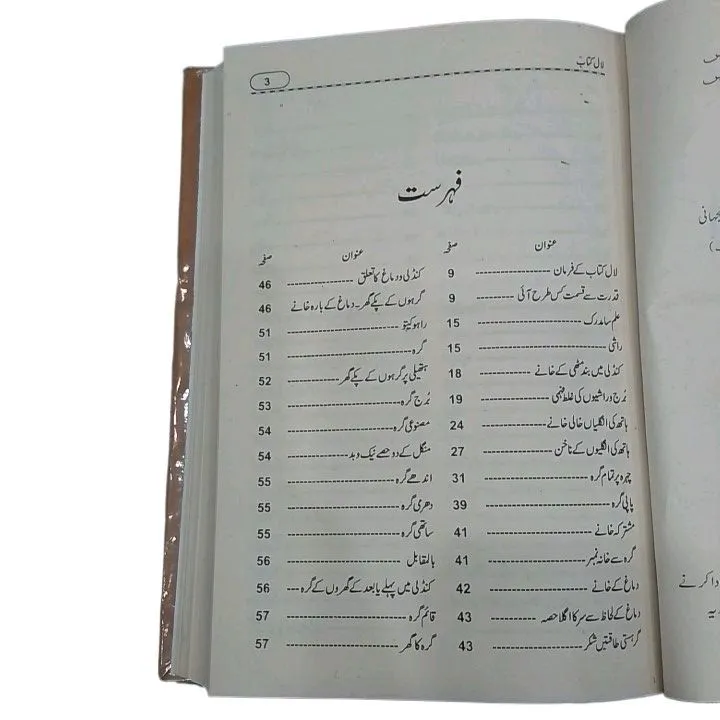 لال کتاب
3
فہرست
عنوان صفحہ
لال کتاب کے فرمان ---------------- 9
قدرت سے قسمت کس طرح آئی --------- 9
علم سامدرک ---------------------- 15
راشی -------------------------- 15
کنڈلی میں بند مٹھی کے خانے ----------- 18
بُرج و راشیوں کی غلط فہمی ------------- 19
ہاتھ کی انگلیاں خالی خانے -------------- 24
ہاتھ کی انگلیوں کے ناخن ---------------- 27
چہرہ پر تمام گرہ ------------------- 31
پاپی گرہ ------------------------ 39
مشترکہ خانے --------------------- 41
گرہ سے خانہ نمبر ------------------- 41
دماغ کے خانے -------------------- 42
دماغ کے لحاظ سے سر کا اگلا حصہ --------- 43
گرہستی طاقتیں شکر ----------------- 43
عنوان صفحہ
کنڈلی و دماغ کا تعلق ---------------- 46
گرہوں کے پکے گھر۔ دماغ کے بارہ خانے 46
راہو کیتو ----------------------- 51
گرہ --------------------------- 51
ہتھیلی پر گرہوں کے پکے گھر ----------- 52
بُرج گرہ ------------------------ 53
مصنوعی گرہ --------------------- 54
منگل کے دو حصے نیک و بد ------------ 54
اندھے گرہ ---------------------- 55
دھرمی گرہ ---------------------- 55
ساتھی گرہ ---------------------- 55
بالمقابل ----------------------- 56
کنڈلی میں پہلے یا بعد کے گھروں کے گرہ --- 56
قائم گرہ ------------------------ 57
گرہ کا گھر ----------------------- 57
دا کرنے
یہ